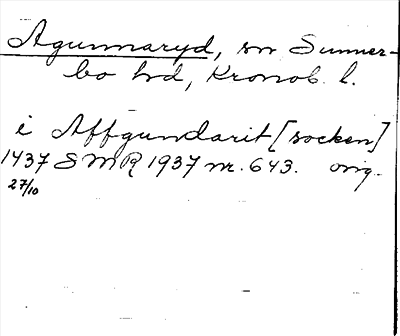 Agunnaryd, sn Sunner-
bo hd, Kronob. l.
i Affgundarit [socken]
1437 SMR 1937 nr. 643. orig.
27/10